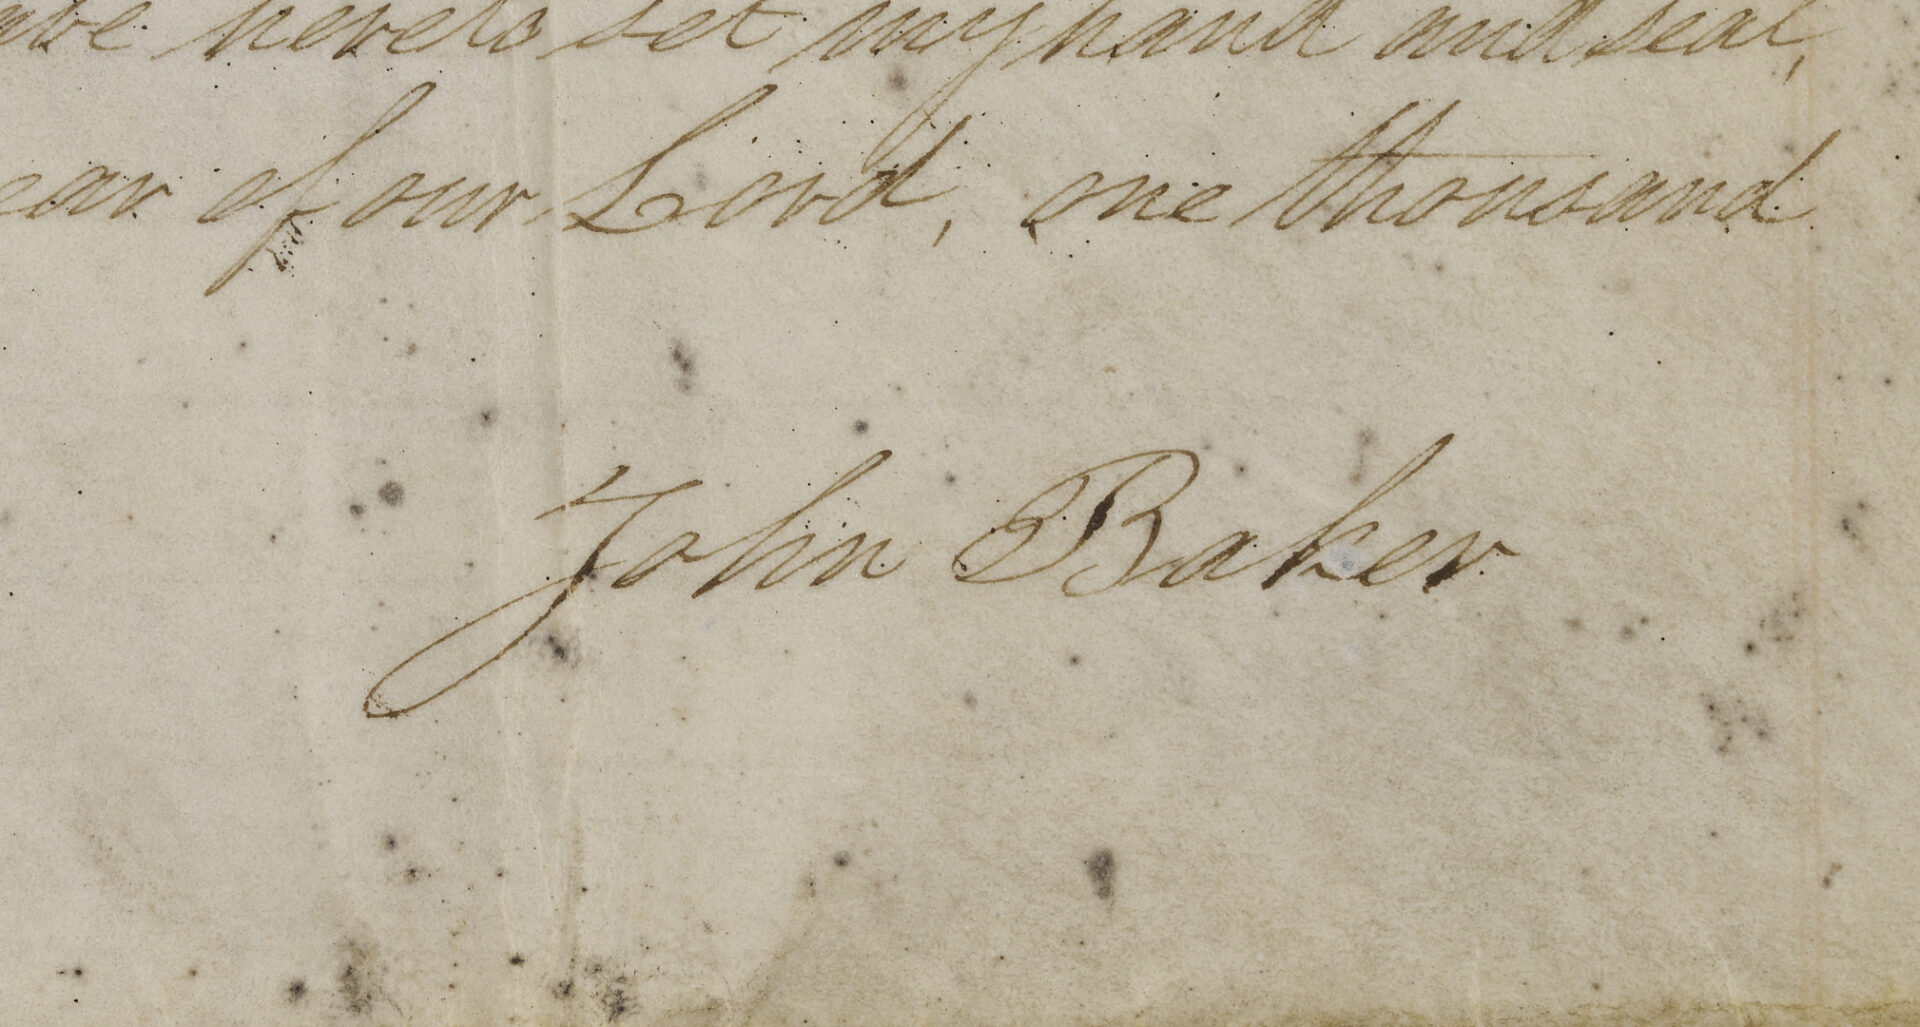 have hereto set my hand and seal,
ear of our Lord, one thousand
John Baker